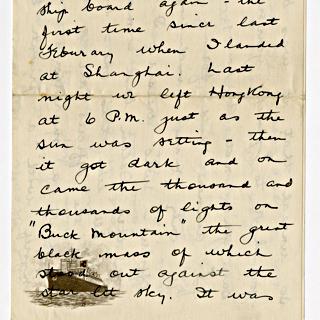 ship board again - the
first time since last
Feburary when I landed
at Shanghai. Last
night we left HongKong
at 6 P.M. just as the
sun was setting - then
it got dark and on
came the thousand and
thousands of lights on
"Buck Mountain" the great
black mass of which
stood out against the
star lit sky. It was